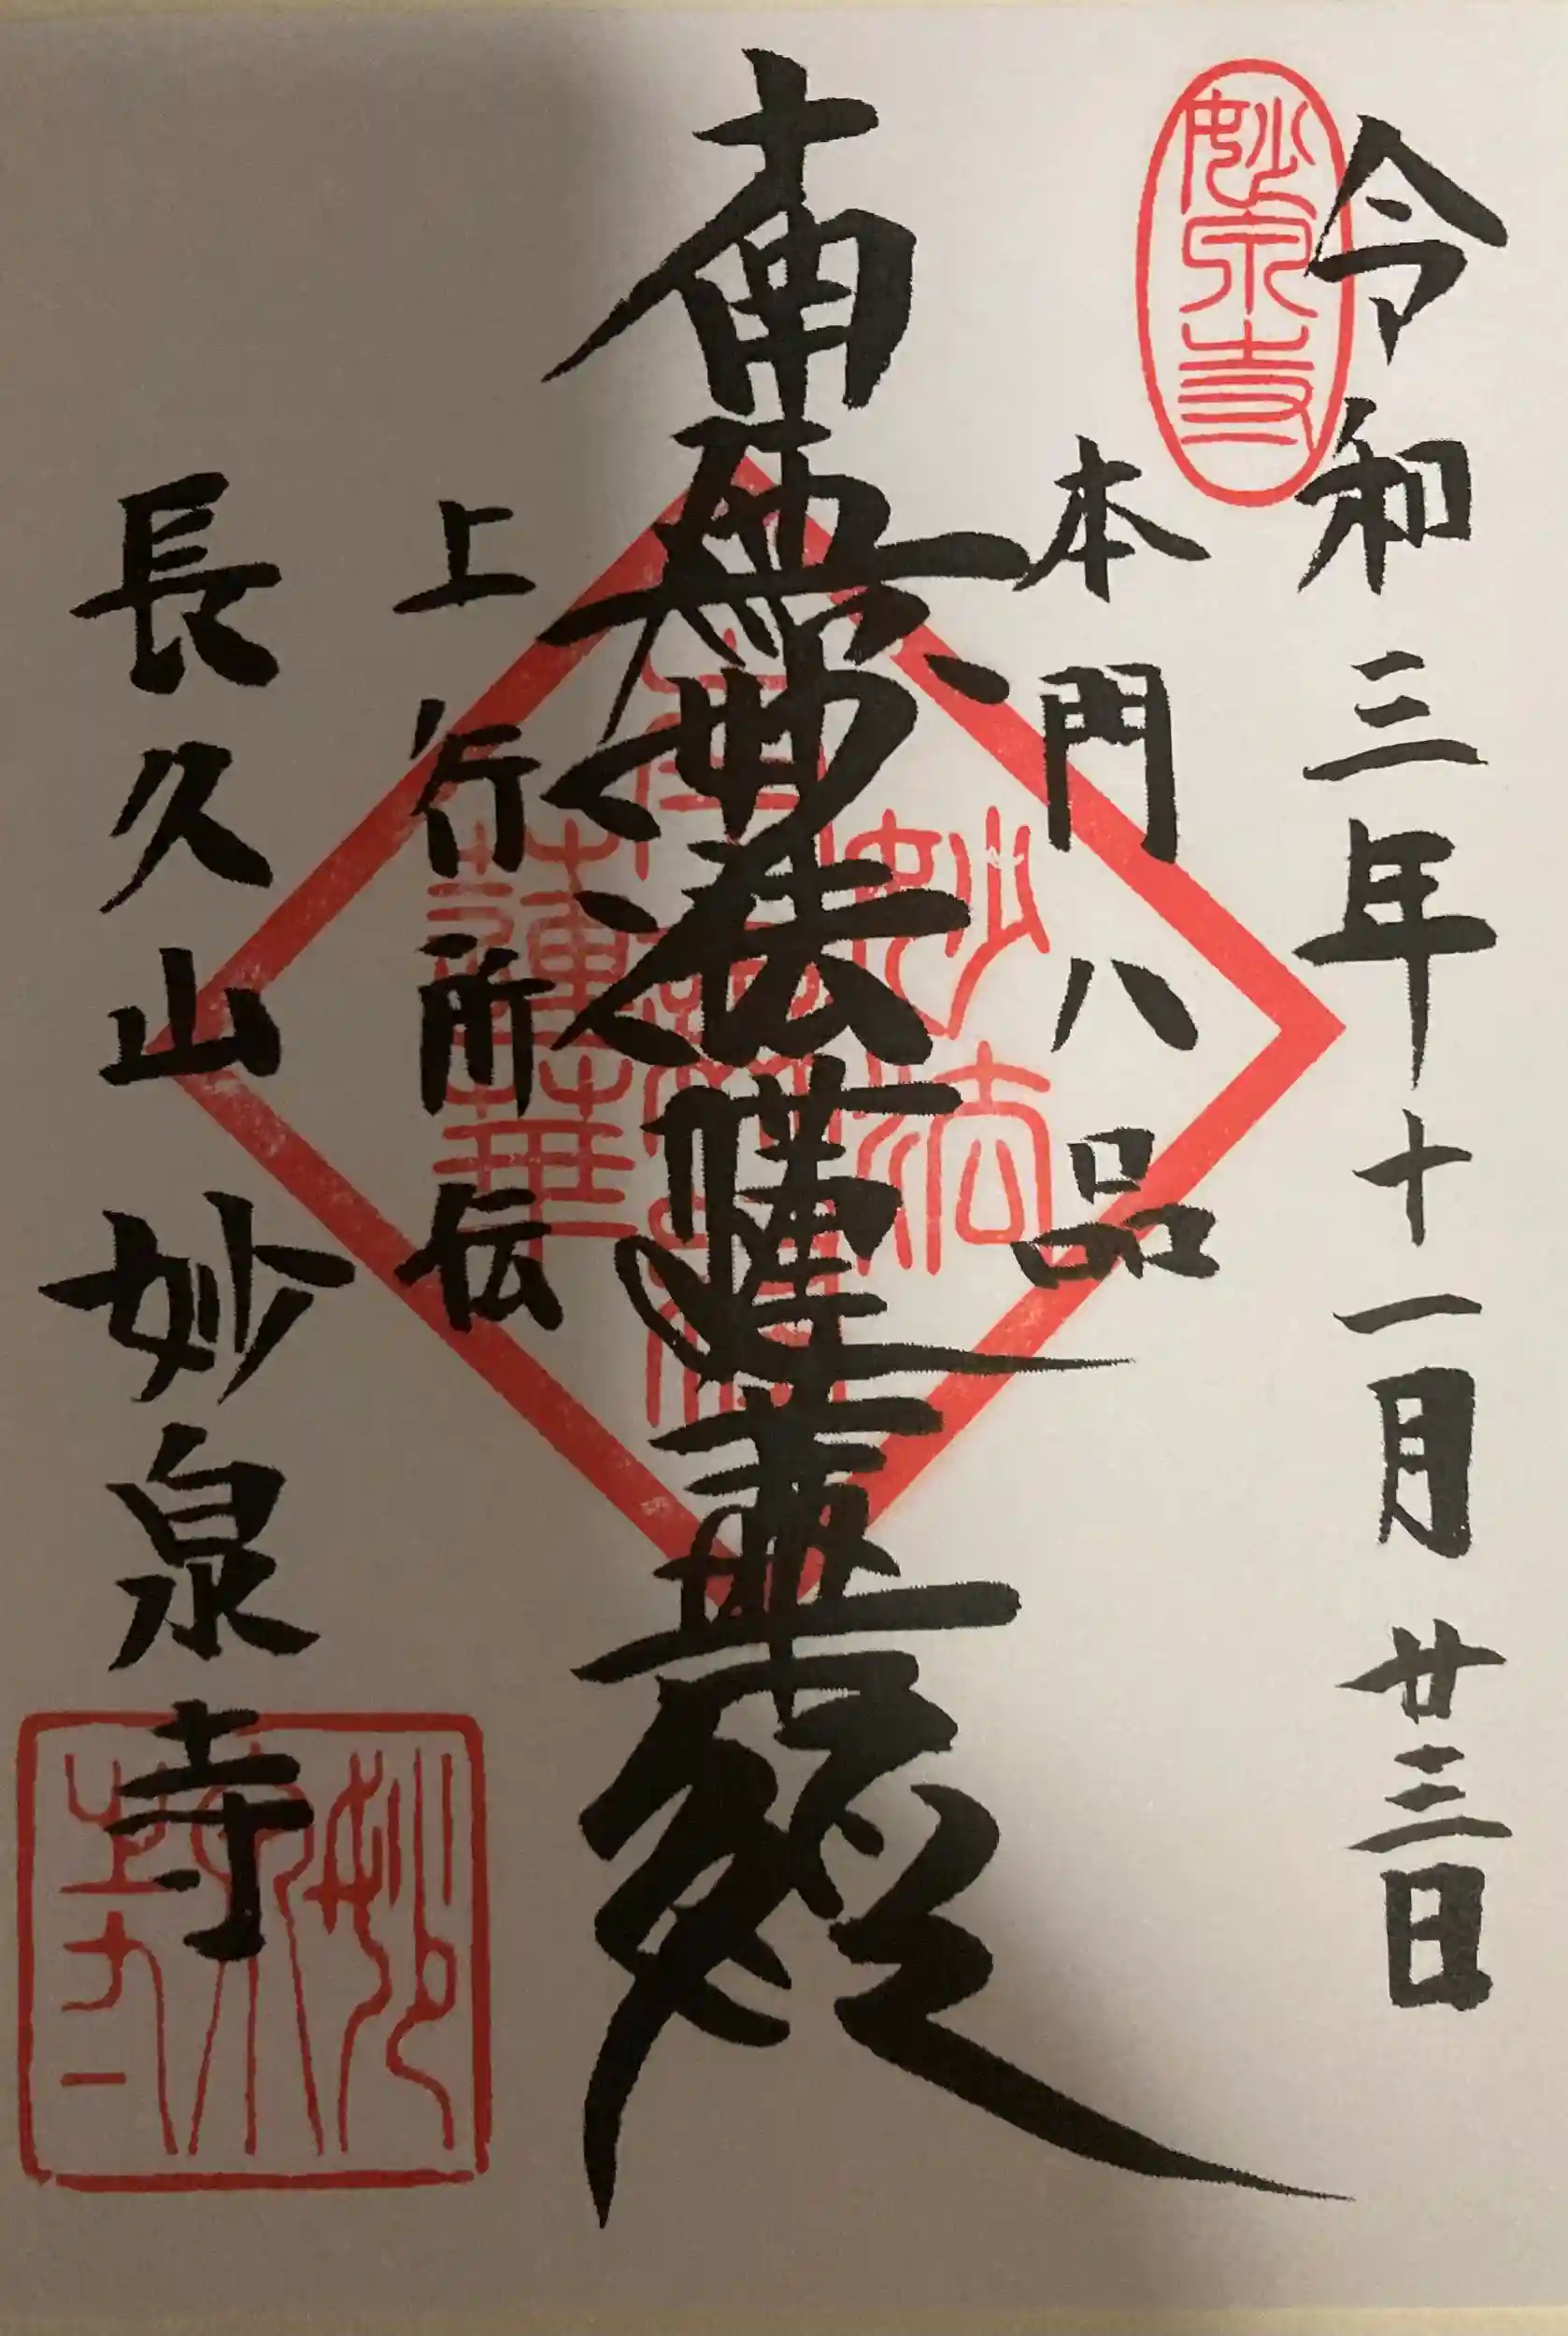 令和三年十一月廿三日
妙泉寺
本門八品
南無妙法蓮華経
上行所伝
妙法
蓮華
長久山 妙泉寺